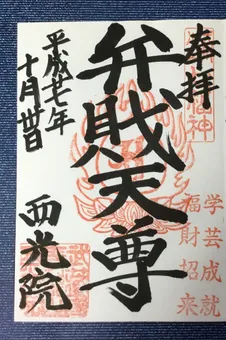 奉拝
弁財天尊
学芸成就
福財招来
平成廿七年
十月廿日
西光院